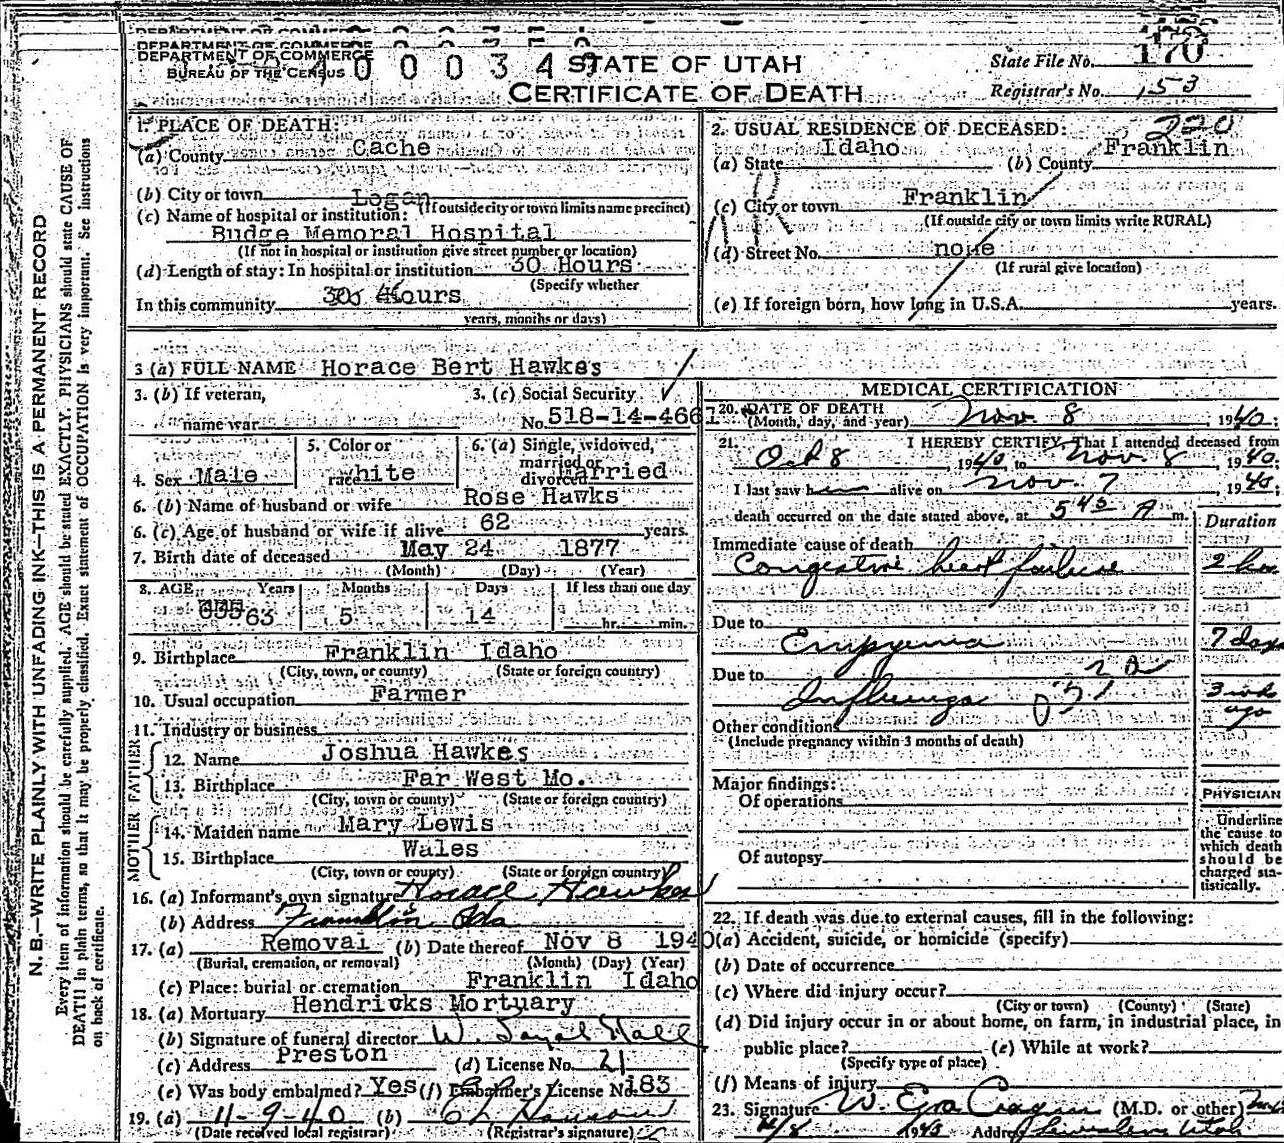 DEPARTMENT OF COMMERCE
BUREAU OF THE CENSUS
STATE OF UTAH
CERTIFICATE OF DEATH
State File No. 170
Registrar's No. 153
N. B.—WRITE PLAINLY WITH UNFADING INK—THIS IS A PERMANENT RECORD
Every item of information should be carefully supplied. AGE should be stated EXACTLY. PHYSICIANS should state CAUSE OF
DEATH in plain terms, so that it may be properly classified. Exact statement of OCCUPATION is very important. See Instructions
on back of certificate.
1. PLACE OF DEATH:
(a) County Cache
(b) City or town Logan
(If outside city or town limits name precinct)
(c) Name of hospital or institution:
Budge Memoral Hospital
(If not in hospital or institution give street number or location)
(d) Length of stay: In hospital or institution 30 Hours
(Specify whether
In this community 30 Hours
years, months or days)
2. USUAL RESIDENCE OF DECEASED: 220
(a) State Idaho (b) County Franklin
(c) City or town Franklin
(If outside city or town limits write RURAL)
(d) Street No. none
(If rural give location)
(e) If foreign born, how long in U.S.A. years.
3 (a) FULL NAME Horace Bert Hawkes
3. (b) If veteran,
name war
3. (c) Social Security
No. 518-14-4661
4. Sex Male
5. Color or
race white
6. (a) Single, widowed,
married or
divorced Married
6. (b) Name of husband or wife Rose Hawks
6. (c) Age of husband or wife if alive 62 years.
7. Birth date of deceased May 24 1877
(Month) (Day) (Year)
8. AGE Years Months Days If less than one day
63 5 14 hr. min.
9. Birthplace Franklin Idaho
(City, town, or county) (State or foreign country)
10. Usual occupation Farmer
11. Industry or business
FATHER
12. Name Joshua Hawkes
13. Birthplace Far West Mo.
(City, town or county) (State or foreign country)
MOTHER
14. Maiden name Mary Lewis
15. Birthplace Wales
(City, town or county) (State or foreign country)
16. (a) Informant's own signature Horace Hawkes
(b) Address Franklin Ida
17. (a) Removal (b) Date thereof Nov 8 1940
(Burial, cremation, or removal) (Month) (Day) (Year)
(c) Place: burial or cremation Franklin Idaho
18. (a) Mortuary Hendricks Mortuary
(b) Signature of funeral director W. Hall
(c) Address Preston (d) License No. 21
(e) Was body embalmed? Yes (f) Embalmer's License No. 183
19. (a) 11-9-40 (b)
(Date received local registrar) (Registrar's signature)
MEDICAL CERTIFICATION
20. DATE OF DEATH
(Month, day, and year) Nov 8, 1940.
21. I HEREBY CERTIFY, That I attended deceased from
Oct 8, 1940 to Nov. 8, 1940.
I last saw him alive on Nov. 7, 1940;
death occurred on the date stated above, at 5 45 A m.
Duration
Immediate cause of death
Congestive heart failure 2 hrs
Due to
Empyema 7 days
Due to
Influenza 3 wks
ago
Other conditions
(Include pregnancy within 3 months of death)
Major findings:
Of operations
Of autopsy
PHYSICIAN
Underline
the cause to
which death
should be
charged sta-
tistically.
22. If death was due to external causes, fill in the following:
(a) Accident, suicide, or homicide (specify)
(b) Date of occurrence
(c) Where did injury occur?
(City or town) (County) (State)
(d) Did injury occur in or about home, on farm, in industrial place, in
public place? (e) While at work?
(Specify type of place)
(f) Means of injury
23. Signature W. Ezra Cragun (M.D. or other)
Address Utah